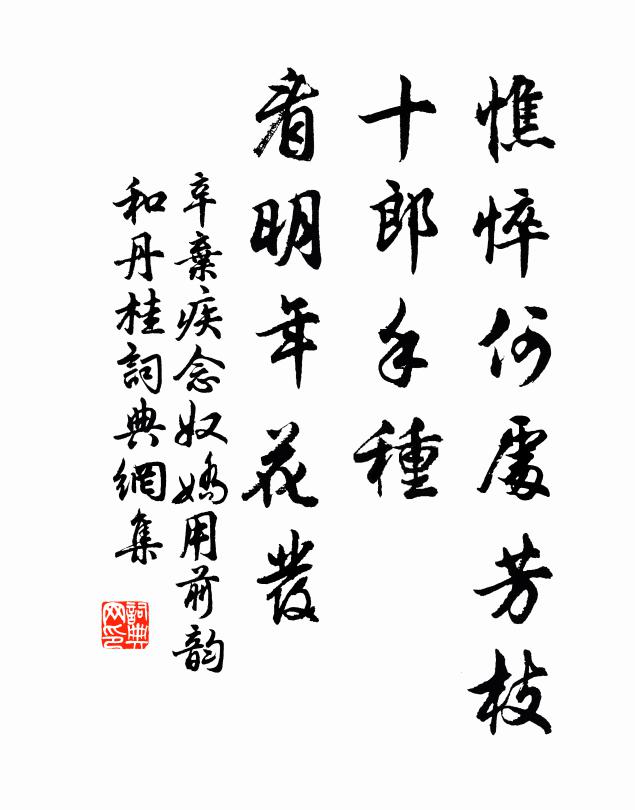 憔悴何處芳枝
十郎手種
看明年花發
辛棄疾念奴嬌用前韵
和丹桂詞典網集
詞典
网印